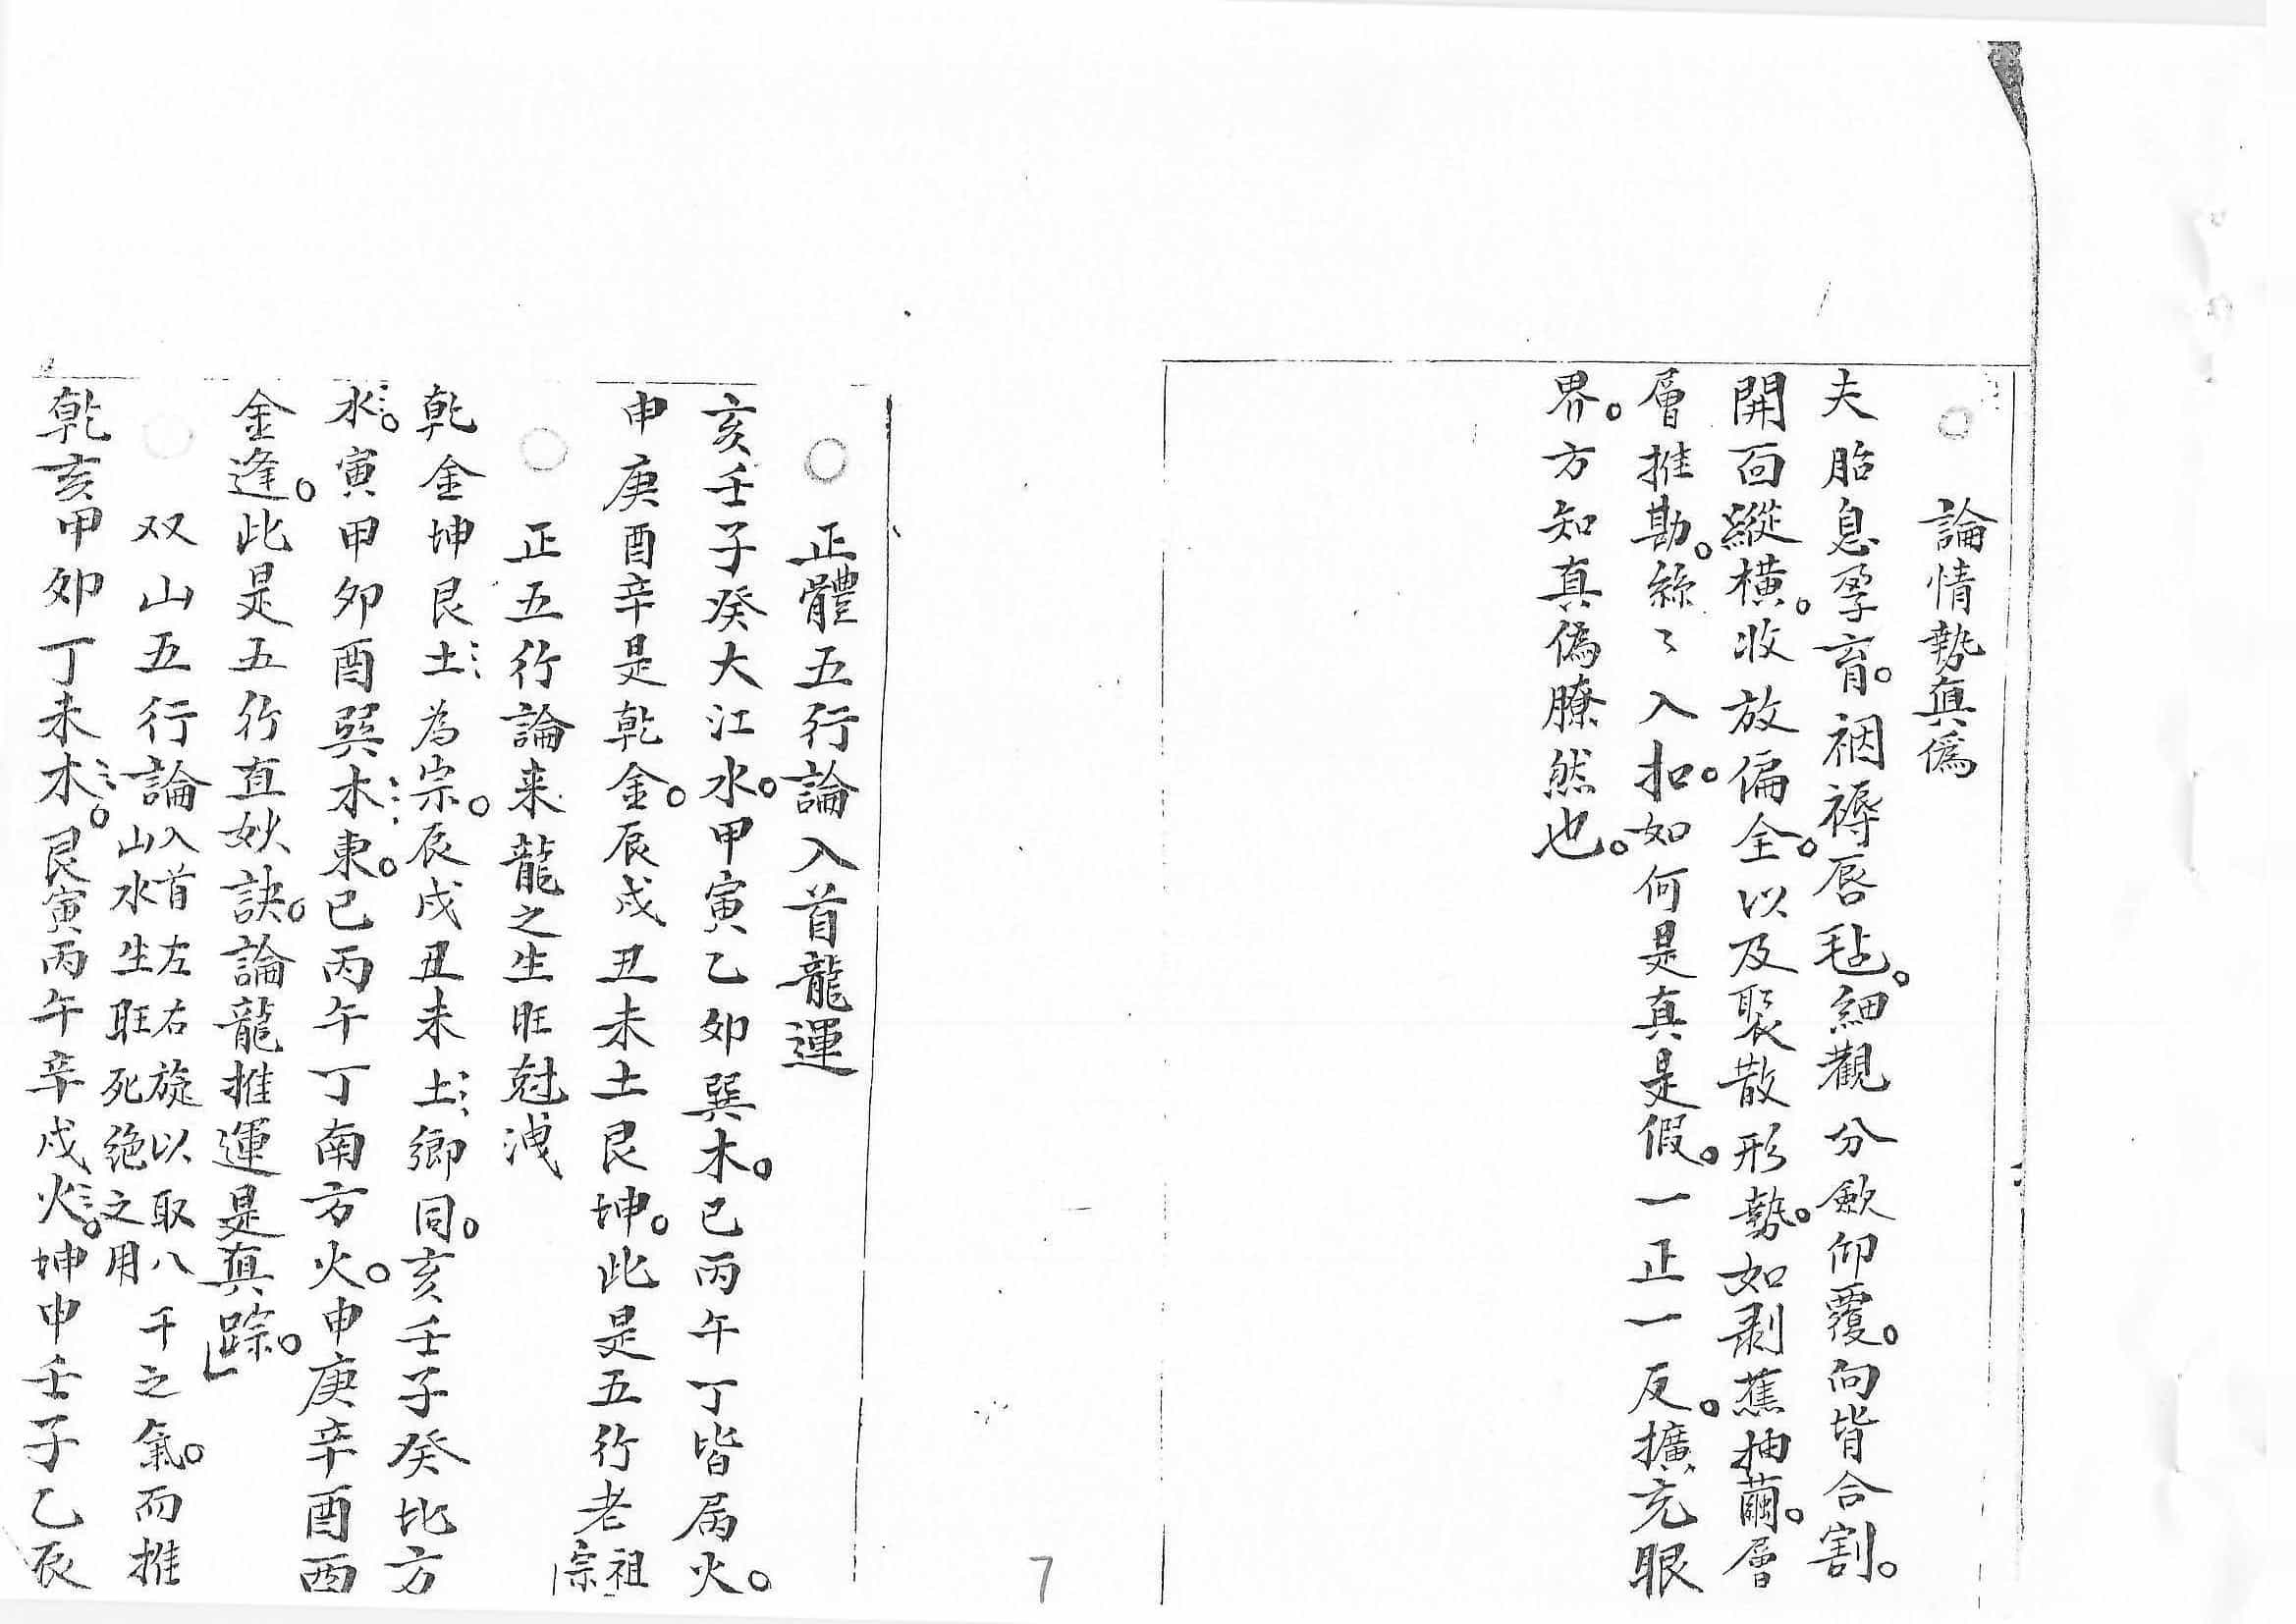 ○ 論情勢真偽
夫胎息孕育。裀褥唇毡。細觀分歛仰覆。向背合割。
開面縱橫。收放偏全。以及聚散形勢。如剥蕉抽繭。層
層推勘。絲〻入扣。如何是真是假。一正一反。擴充眼
界。方知真偽瞭然也。
○ 正體五行論入首龍運
亥壬子癸大江水。甲寅乙卯巽木。巳丙午丁皆屬火。
申庚酉辛是乾金。辰戌丑未土艮坤。此是五行老祖宗
○ 正五行論来龍之生旺尅洩
乾金坤艮土為宗。辰戌丑未土鄉同。亥壬子癸北方
水。寅甲夘酉巽木東。巳丙午丁南方火。申庚辛酉西
金逢。此是五行直妙訣。論龍推運是真踪。
○ 双山五行論 入首左右旋以取八干之氣。而推
山水生旺死絶之用
乾亥甲卯丁未木。艮寅丙午辛戌火。坤申壬子乙辰
7